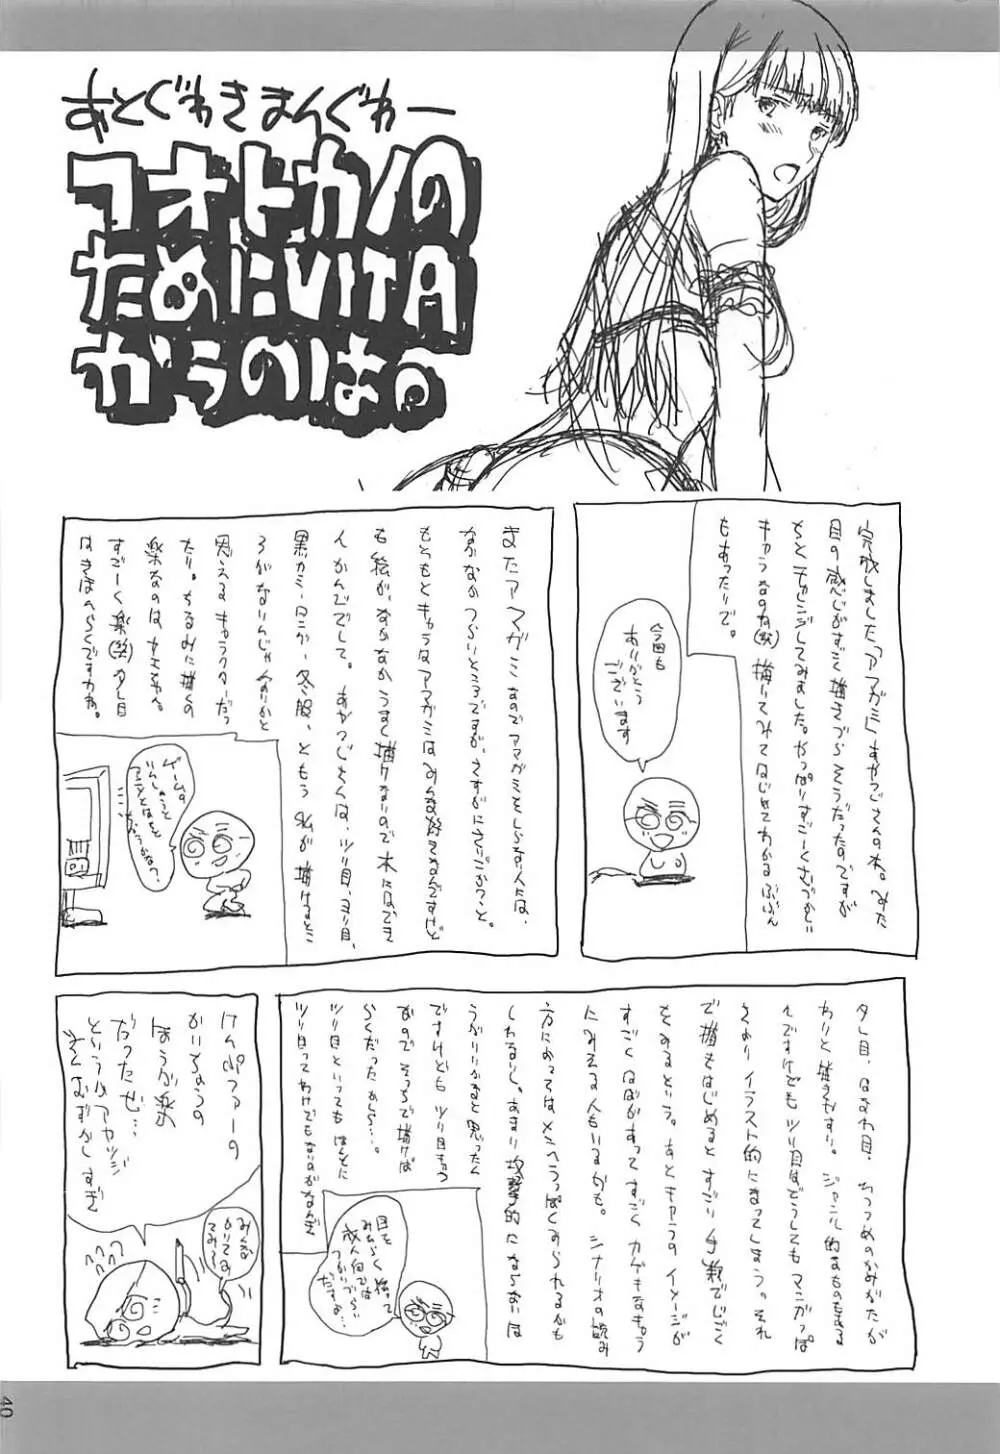 あとぐわきまんぐわー
コオトカノの
ためにVITA
かうのはる
完成しました「アマガミ」あやつじさんの本。みた
目の感じがすごく描きづらそうだったのですが
ちとチャレンジしてみました。やっぱりすごーくむづかしい
キャラなのね(笑)描いてみてはじめてわかるぶぶん
もあったりで。
今回も
ありがとう
ございます
またアマガミなのでアマガミをしらない人には、
なかなかつらいところですが、さすがにさいごかつーと。
もともとキャラはアマガミはみんな好きなんですけど
も絵が、なかなかうまく描けないので本にはでき
んかんじでして。あやつじさんは、ツリ目、ヨリ目、
黒カミ・ロング・冬服、ともう私が描けるとこ
ろがないんじゃないかと
思えるキャラクターだっ
たり。ちなみに描くの
楽なのは
すごーく楽(笑)タレ目
はきほんらくですわね。
ゲームの
いんしょうと
アニメとはほと
タレ目、はなれ目、
わりと描きやすい。ジャンル的なものもある
んですけどもツリ目はどうしてもマンガっぽ
さよりイラスト的になってしまう。それ
で描もはじめるとすごい手数でじごく
をみるという。あとキャラのイメージが
すごくはばがあってすごくカゲキなキャラ
にみえる人もいるかも。シナリオの読み
方によってはメンヘラっぽくみられるかも
しれないし。あまり攻撃的にならないほ
うがいいかなと思ったん
ですけどもツリ目キャラ
なのでそっちで描けば
らくだったかしら…。
ツリ目といってもほんとに
ツリ目ってわけでもないのがなんぎ
目を
みひらく描って
成人向では
つかいづらい
だすよ
けんぷファーの
かいちょうの
ほうが楽
だったぜ…
というかアヤツジ
さんむずかしすぎ
みんな
かいてる
てみろ
40